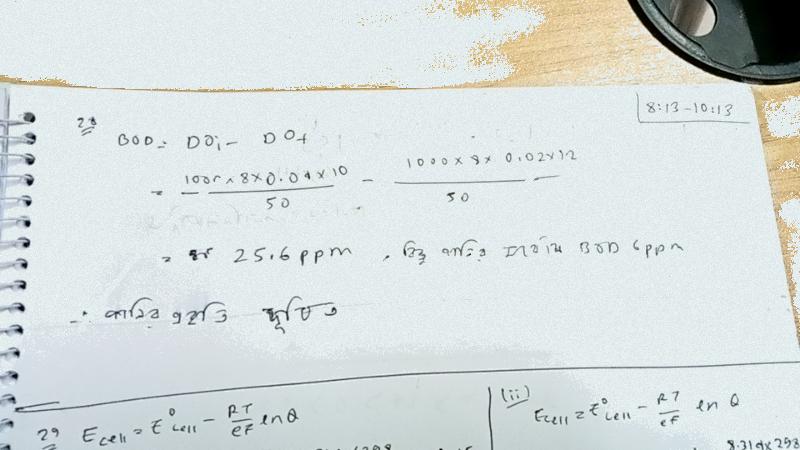 8:13-10:13
28
BOD = DOi - DOf
= 1000 × 8 × 0.04 × 10 / 50 - 1000 × 8 × 0.02 × 12 / 50
= 25.6 ppm , কিন্তু পানির BOD 6 ppm
∴ পানির প্রকৃতি দূষিত
29 Ecell = E⁰cell - RT/eF ln Q
(ii) Ecell = E⁰cell - RT/eF ln Q
8.314×298